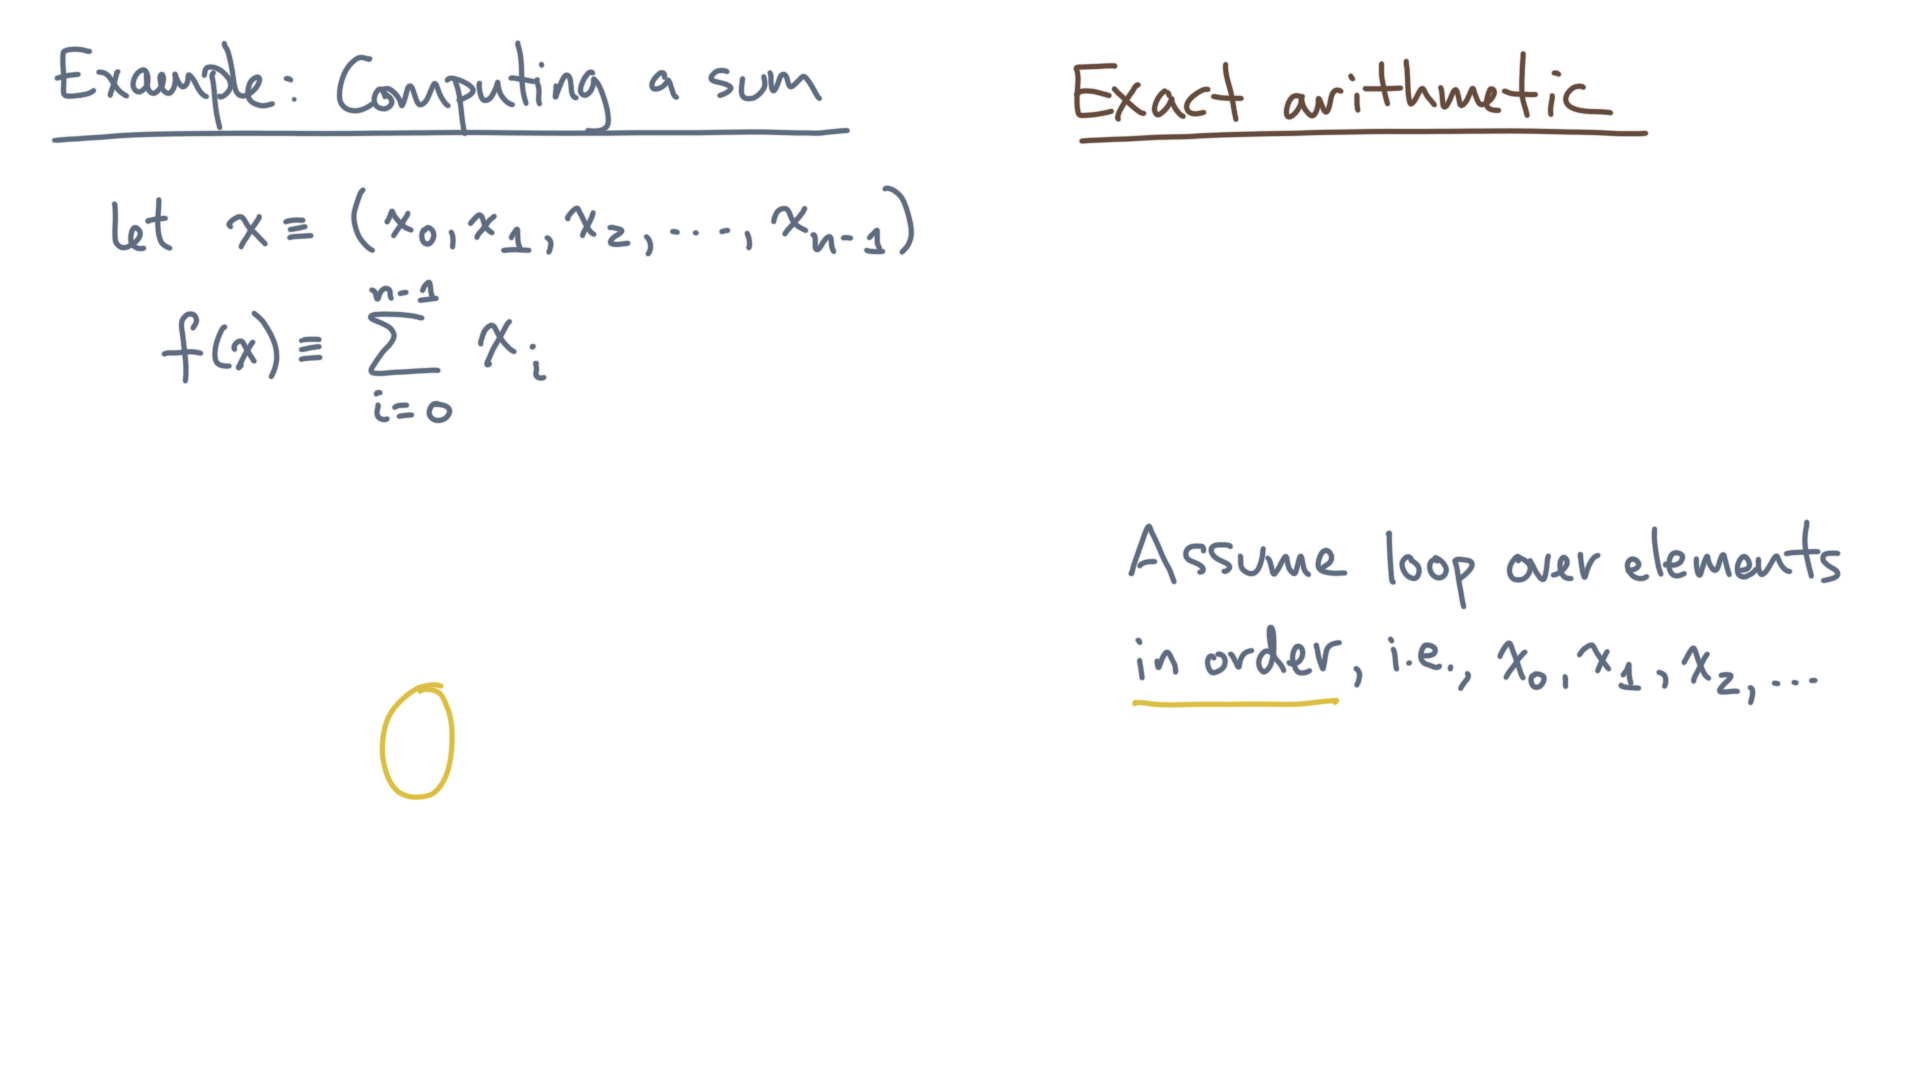 Example: Computing a sum
let x ≡ (x₀, x₁, x₂, ..., xₙ₋₁)
n-1
f(x) ≡ ∑ xᵢ
i=0
0
Exact arithmetic
Assume loop over elements
in order, i.e., x₀, x₁, x₂, ...